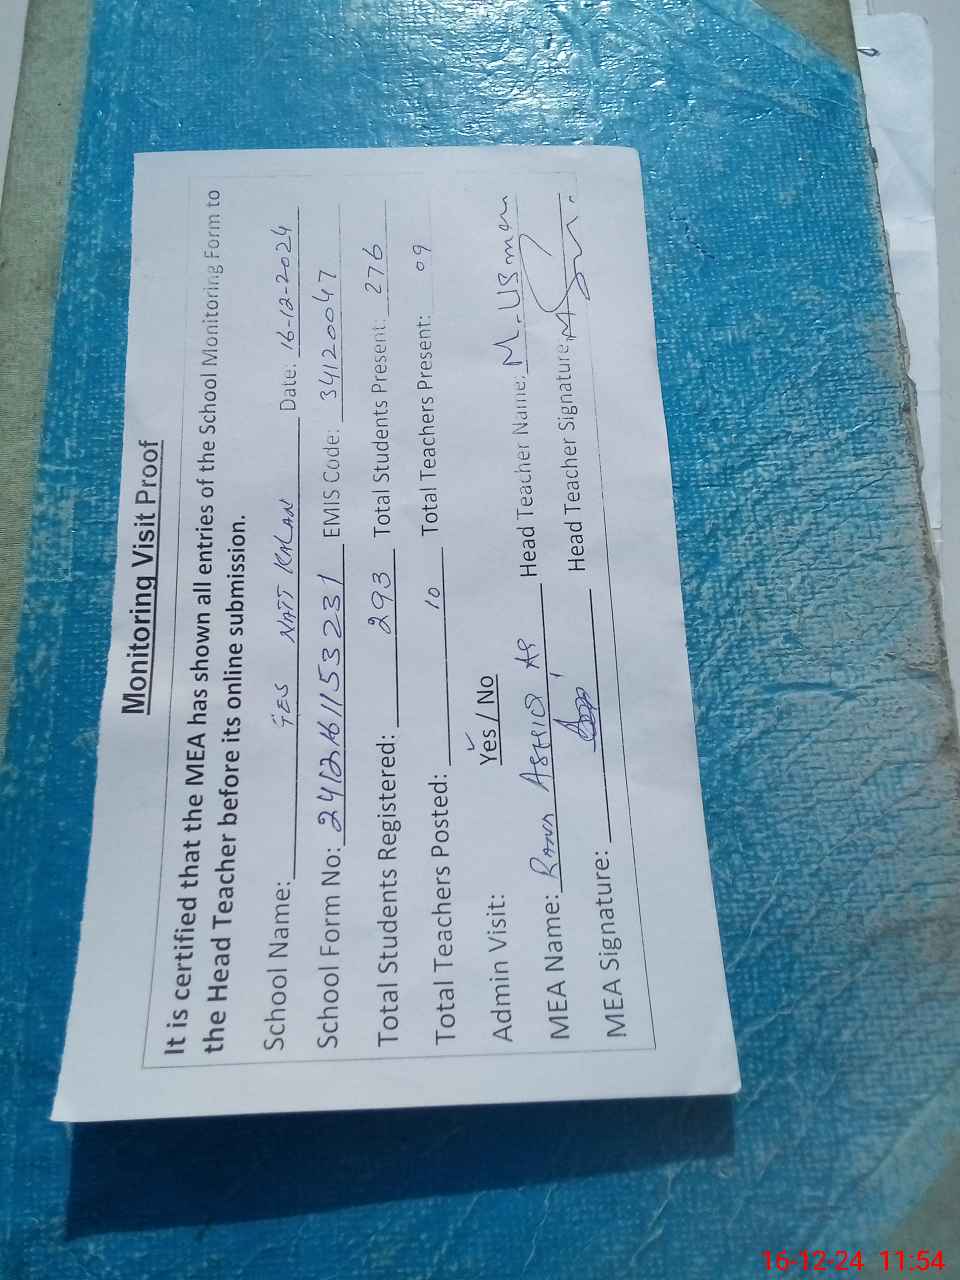 Monitoring Visit Proof
It is certified that the MEA has shown all entries of the School Monitoring Form to
the Head Teacher before its online submission.
School Name: GES NATT KALAN Date: 16-12-2024
School Form No: 24121611532 31 EMIS Code: 34120047
Total Students Registered: 293 Total Students Present: 276
Total Teachers Posted: 10 Total Teachers Present: 09
Admin Visit: Yes / No
MEA Name: RANA ASHIQ Head Teacher Name: M. Usman
MEA Signature: Head Teacher Signature
16-12-24 11:54